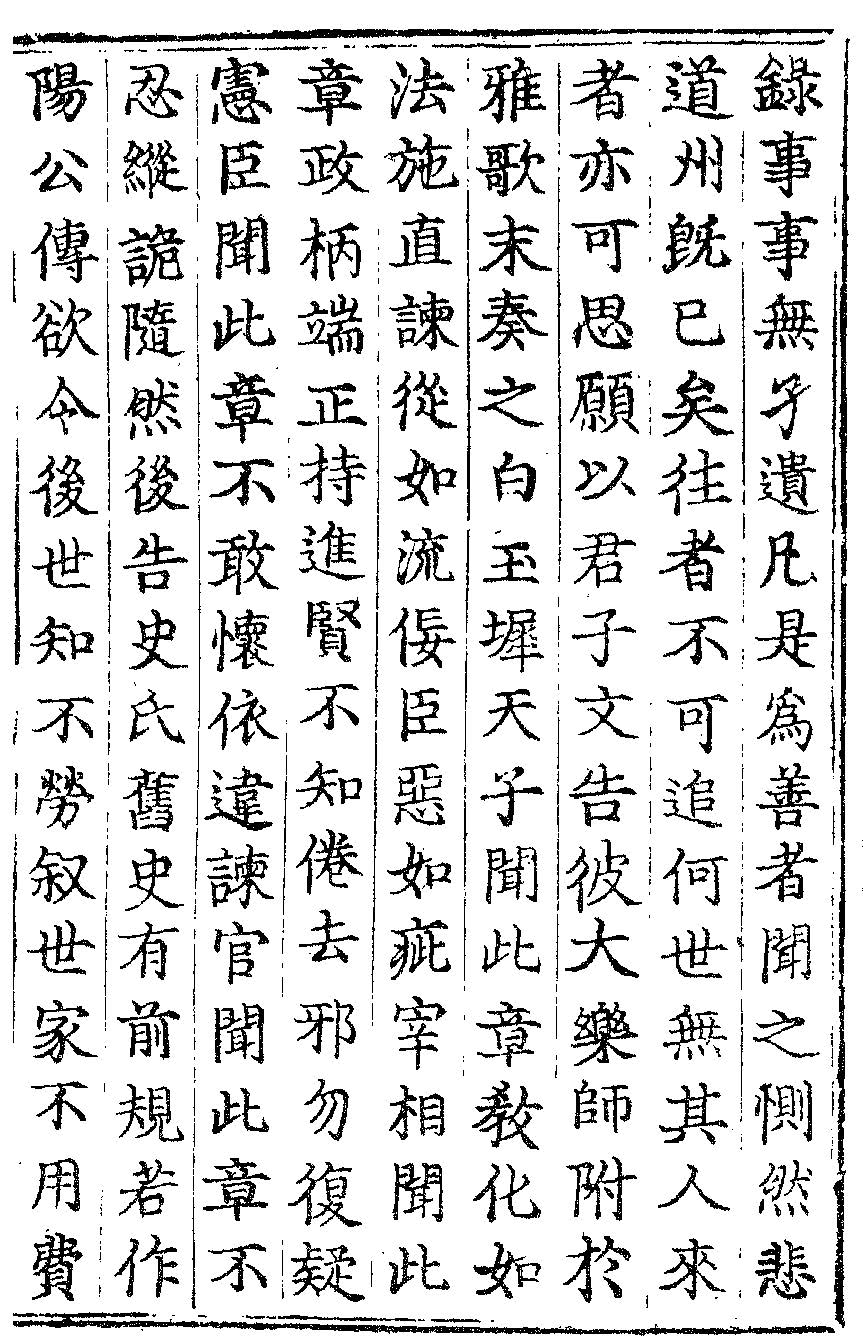 錄事事無孑遺凡是爲善者聞之惻然悲
道州旣已矣徃者不可追何世無其人來
者亦可思願以君子文告彼大樂師附於
雅歌末奏之白玉墀天子聞此章敎化如
法施直諫從如流佞臣惡如疵宰相聞此
章政柄端正持進賢不知倦去邪勿復疑
憲臣聞此章不敢懷依違諫官聞此章不
忍縱詭隨然後告史氏舊史有前規若作
陽公傳欲令後世知不勞叙世家不用費